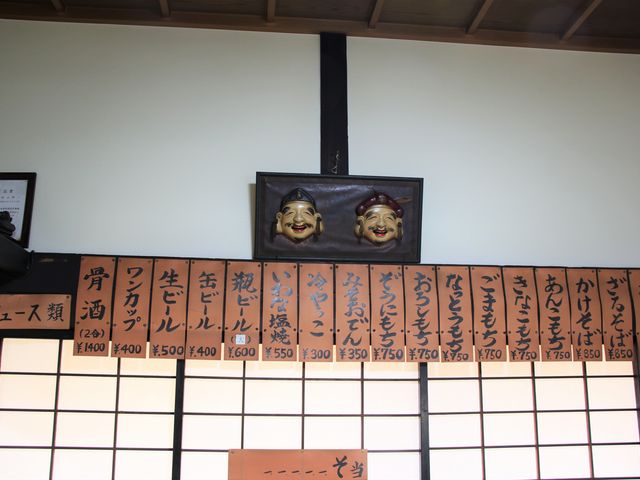 ざるそば ¥850
かけそば ¥850
あんこもち ¥750
きなこもち ¥750
ごまもち ¥750
なっとうもち ¥750
おろしもち ¥750
ぞうにもち ¥750
みそおでん ¥350
冷やっこ ¥300
いわな塩焼 ¥550
瓶ビール (大) ¥600
缶ビール ¥400
生ビール ¥500
ワンカップ ¥400
骨酒 (2合) ¥1400
ュース類
当
そ